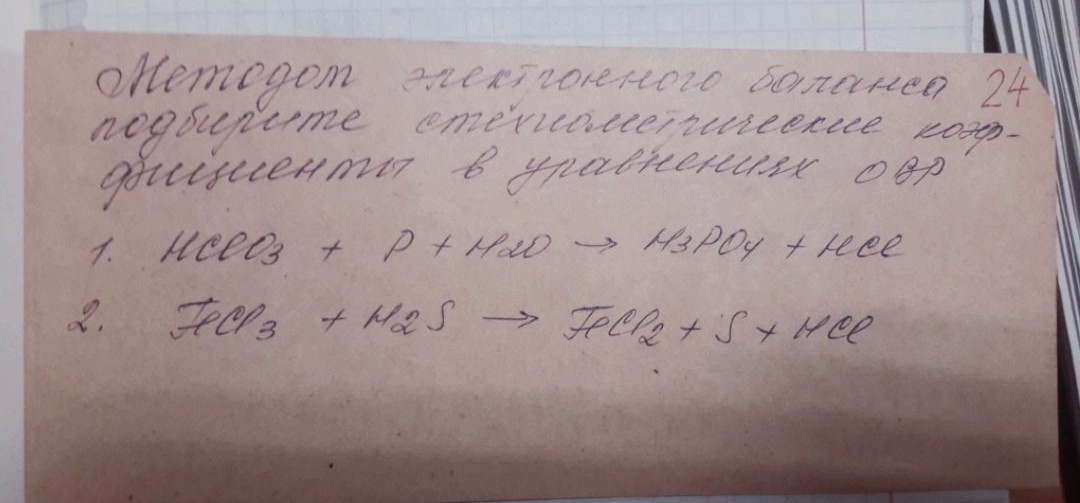 Методом электронного баланса 24
подбирите стехиометрические коэф-
фициенты в уравнениях ОВР
1. HClO3 + P + H2O → H3PO4 + HCl
2. FeCl3 + H2S → FeCl2 + S + HCl